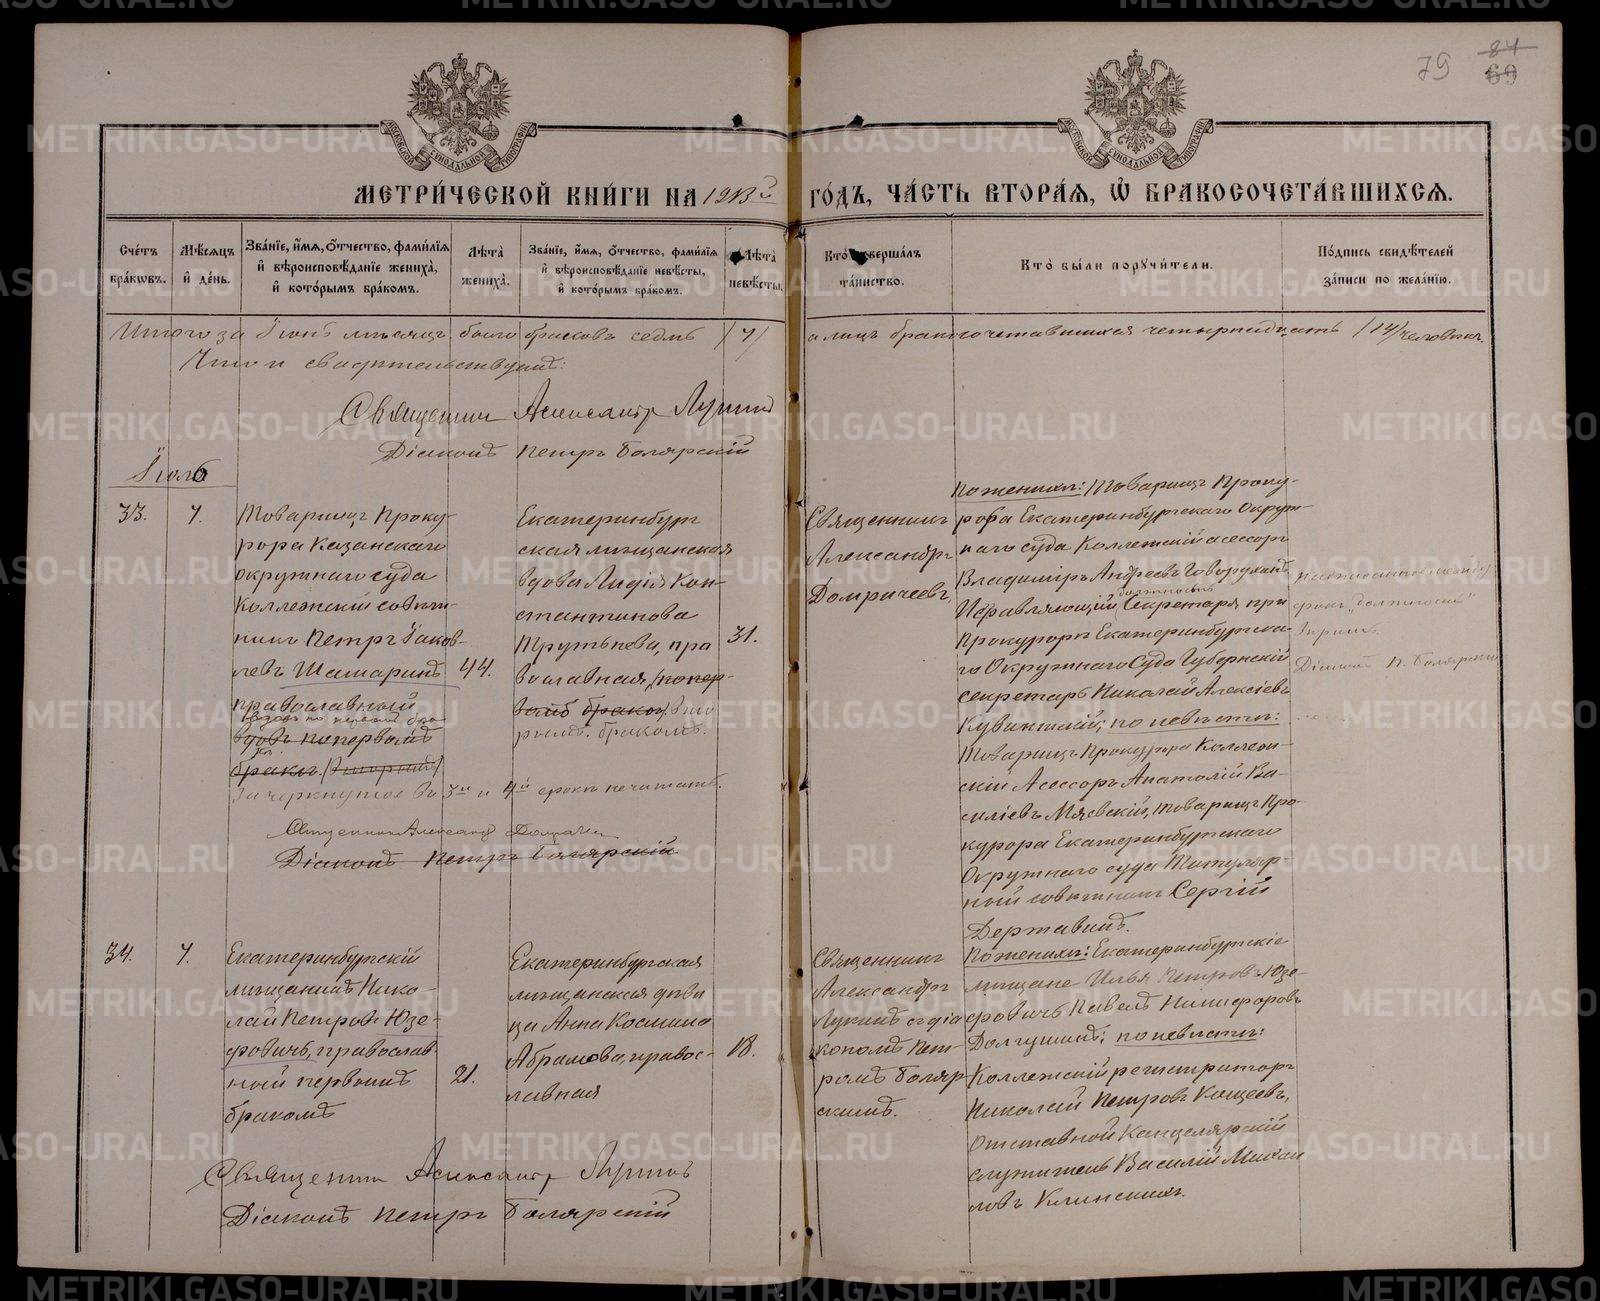 79
84
69
МОСКОВСКОЙ СѴНОДАЛЬНОЙ ТИПОГРАФІИ
МОСКОВСКОЙ СѴНОДАЛЬНОЙ ТИПОГРАФІИ
МЕТРИ́ЧЕСКОЙ КНИ́ГИ НА 1913й ГО́ДЪ, ЧА́СТЬ ВТОРА́Я, Ѿ БРАКОСОЧЕТА́ВШИХСЯ.
Сче́тъ бра́ковъ.
Мѣ́сяцъ и҆ де́нь.
Зва́нїе, и҆́мя, ѻ҆́тчество, фами́лїя и҆ вѣроисповѣ́данїе жениха̀, и҆ кото́рымъ бра́комъ.
Лѣ́та жениха̀.
Зва́нїе, и҆́мя, ѻ҆́тчество, фами́лїя и҆ вѣроисповѣ́данїе невѣ́сты, и҆ кото́рымъ бра́комъ.
Лѣ́та невѣ́сты.
Кто̀ соверша́лъ та́инство.
Кто̀ бы́ли порꙋчи́тели.
По́дпись свидѣ́телей за́писи по жела́нїю.
Итого за Іюнь мѣсяцъ было браковъ седмь /7/ а лицъ бракосочетавшихся четырнадцать /14/ человѣкъ.
Что и свидѣтельствуемъ:
Священникъ Александръ Лукинъ
Діаконъ Петръ Болярскій
Іюль
33.
7.
Товарищъ Проку-
рора Казанскаго
окружнаго суда
Коллежскій совѣт-
никъ Петръ Іаков-
левъ Шамаринъ
православный
вдовъ по первомъ бра-
кѣ.
вдовъ по первомъ
бракѣ. /вторымъ/
44.
Екатеринбург
ская мѣщанская
вдова Лидія Кон-
стантинова
Трутнева, пра
вославная, /по пер-
вомъ бракѣ/. вто
рымъ. бракомъ.
31.
Зачеркнутое во 3й и 4й строкѣ не читать.
Священникъ Александръ Домрачевъ
Діаконъ Петръ Болярскій
Священникъ
Александръ
Домрачевъ
По женихѣ: Товарищъ Проку-
рора Екатеринбургскаго Окруж-
наго суда Коллежскій асессоръ
Владиміръ Андреевъ Говорухинъ
должность
Исправляющій Секретаря при
Прокурорѣ Екатеринбургска-
го Окружнаго Суда Губернскій
секретарь Николай Алексіевъ
Кувинскій; по невѣстѣ:
Товарищъ Прокурора Коллеж-
скій Асессоръ Анатолій Ва-
силіевъ Мяевскій, товарищъ Про-
курора Екатеринбургскаго
Окружнаго суда Титуляр-
ный совѣтникъ Сергій
Державинъ.
строкъ „должность“
вѣрить.
Діаконъ П. Болярскій
34.
7.
Екатеринбургскій
мѣщанинъ Нико-
лай Петровъ Юзе-
фовичъ, православ-
ный первымъ
бракомъ
21.
Екатеринбургская
мѣщанская дѣви
ца Анна Космина
Абрамова, правос-
лавная
18.
Священникъ
Александръ
Лукинъ съ діа
кономъ Пет-
ромъ Боляр-
скимъ.
По женихѣ: Екатеринбургскіе
мѣщане Илья Петровъ Юзе-
фовичъ Павелъ Никифоровъ
Долгушинъ; по невѣстѣ:
Коллежскій регистраторъ
Николай Петровъ Кощеевъ,
отставной Канцелярскій
служитель Василій Михаи
ловъ Клинскихъ.
Священникъ Александръ Лукинъ
Діаконъ Петръ Болярскій
METRIKI.GASO-URAL.RU